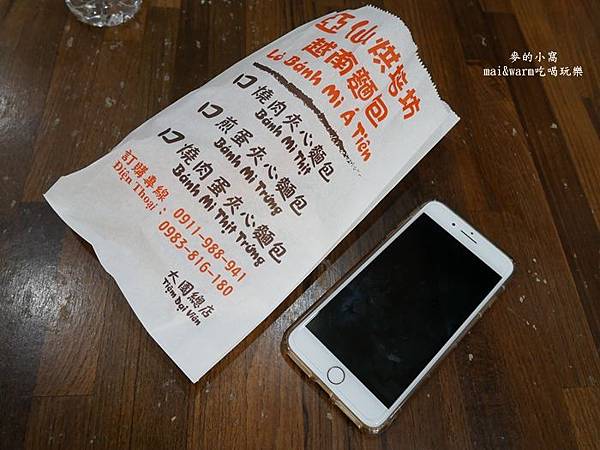 亞仙烘焙坊
越南麵包
Lò Bánh Mì Á Tiên
口燒肉夾心麵包
Bánh Mì Thịt
口煎蛋夾心麵包
Bánh Mì Trứng
口燒肉蛋夾心麵包
Bánh Mì Thịt Trứng
訂購專線:
Điện Thoại
0911-988-941
0983-816-180
大園總店
Tiệm Đại Viên
麥的小窩
mai&warm吃喝玩樂